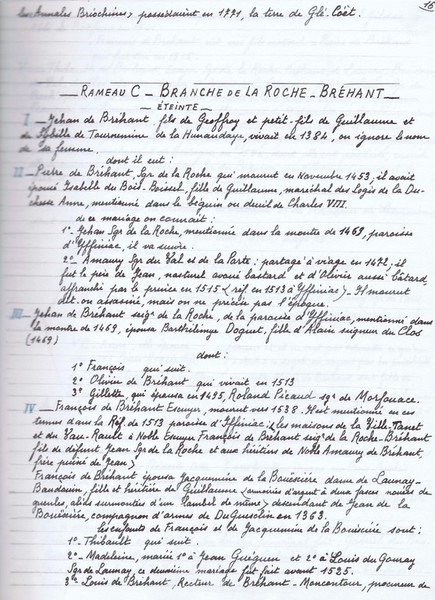 les Annales Briochines, possédaient en 1771, la terre de Glé-Coët.
16
RAMEAU C - BRANCHE DE LA ROCHE-BRÉHANT
ÉTEINTE
I _ Jehan de Bréhant, fils de Geoffroy et petit-fils de Guillaume et
de Sibille de Tournemine de la Hunaudaye, vivait en 1384, on ignore le nom
de sa femme.
dont il eut :
II _ Pierre de Bréhant, Sgr de la Roche qui mourut en Novembre 1453, il avait
épousé Isabelle du Boit-Boissel, fille de Guillaume, maréchal des Logis de la Du-
chesse Anne, mentionné dans le béguin ou deuil de Charles VIII.
de ce mariage on connait :
1° Jehan Sgr de la Roche, mentionné dans la montre de 1469, paroisse
d'Yffiniac, il va suivre.
2° Amaury Sgr du Val et de la Porte : partagé à viage en 1472, il
fut le père de Jean, naturel avoué bastard et d'Olivier aussi bâtard,
affranchi par le prince en 1515 (réf. en 1513 à Yffiniac) - Il mourut
dit-on assassiné, mais on ne précise pas l'époque.
III _ Jehan de Bréhant seigr de la Roche, de la paroisse d'Yffiniac, mentionné dans
la montre de 1469, épousa Barthélémye Doguet, fille d'Alain seigneur du Clos
(1469)
dont :
1° François qui suit.
2° Olivier de Bréhant qui vivait en 1513
3° Gillette, qui épousa en 1495, Roland Picaud sgr de Morfouace.
IV _ François de Bréhant Escuyer, mourut vers 1538. Il est mentionné en ces
termes dans la Réf. de 1513 paroisse d'Yffiniac : les maisons de la Ville-Tanet
et du Vau-Rault à Noble Escuyer François de Bréhant seigr de la Roche-Bréhant
fils de défunt Jean Sgr de la Roche et aux héritiers de Noble Amaury de Bréhant,
frère puîné de Jean)
François de Bréhant épousa Jacquemine de la Bouëxière dame de Launay-
Baudouin, fille et héritière de Guillaume (armoiries d'argent à deux fasces nouées de
gueules, alias surmontées d'un lambel de même) descendant de Jean de la
Bouëxière, compagnon d'arme de DuGuesclin en 1363.
les enfants de François et de Jacquemine de la Bouëxière sont :
1° Thibault qui suit.
2° - Madeleine, mariée 1° à Jean Guéguen et 2° à Louis du Gouray
Sgr de Launay, ce deuxième mariage fut fait avant 1535.
3° - Louis de Bréhant, Recteur de Bréhant-Moncontour, procureur de